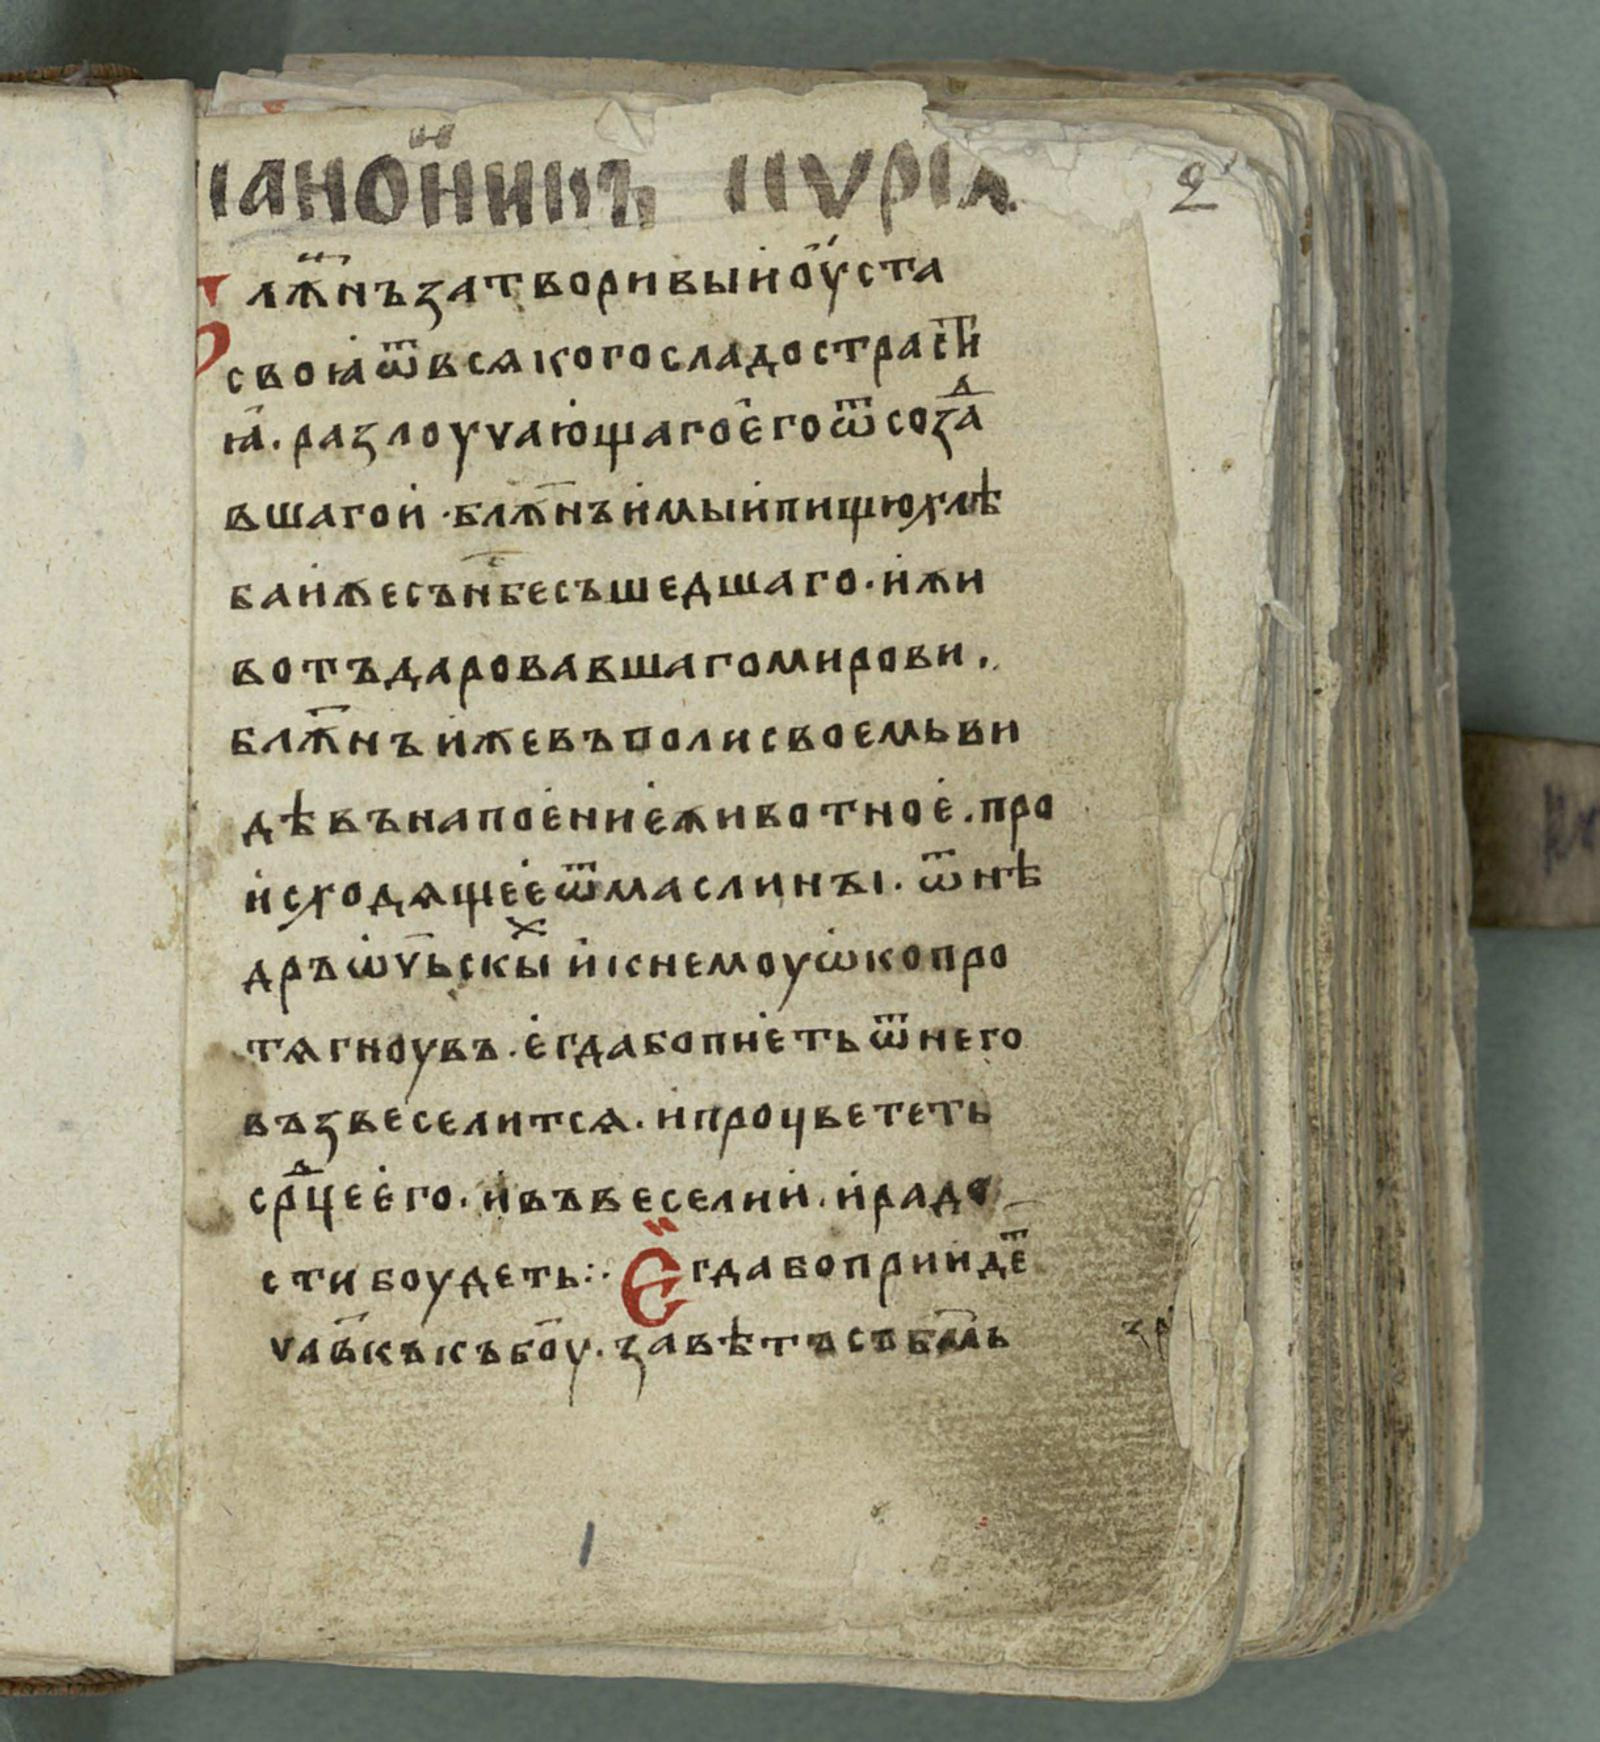 канѡ́никъ кѵрїа 2
Блж҃нъ затворивыи оу҆ста
своꙗ ѿ всѧкого сладострасті
ꙗ҆. разлоучаю҆щаго е҆го ѿ созⷣа
вшаго и҆ · блж҃нъ и҆мыи пищю хлѣ
ба и҆же съ нб҃се съшедшаго · и҆ жи
вотъ даровавшаго мирови .
блж҃нъ иже въ поли своемь ви
дѣ въ напое҆ние҆ животное҆ . про
и҆сходѧщее҆ ѿ маслинꙑ . ѿ нѣ
дръ ѡ҆ч҃ьскыⷯ и҆ к немоу ѡ҆ко про
тѧгноувъ . е҆гда бо пие҆ть ѿ него
възвеселитсѧ . и҆ процвететь
срⷣце е҆го . и҆ въ веселии . и҆ радо
сти боудеть :· Е҆гда бо прииде҆ⷮ
чл҃вкъ къ бо҃у . завѣтъ съ бг҃мь
1